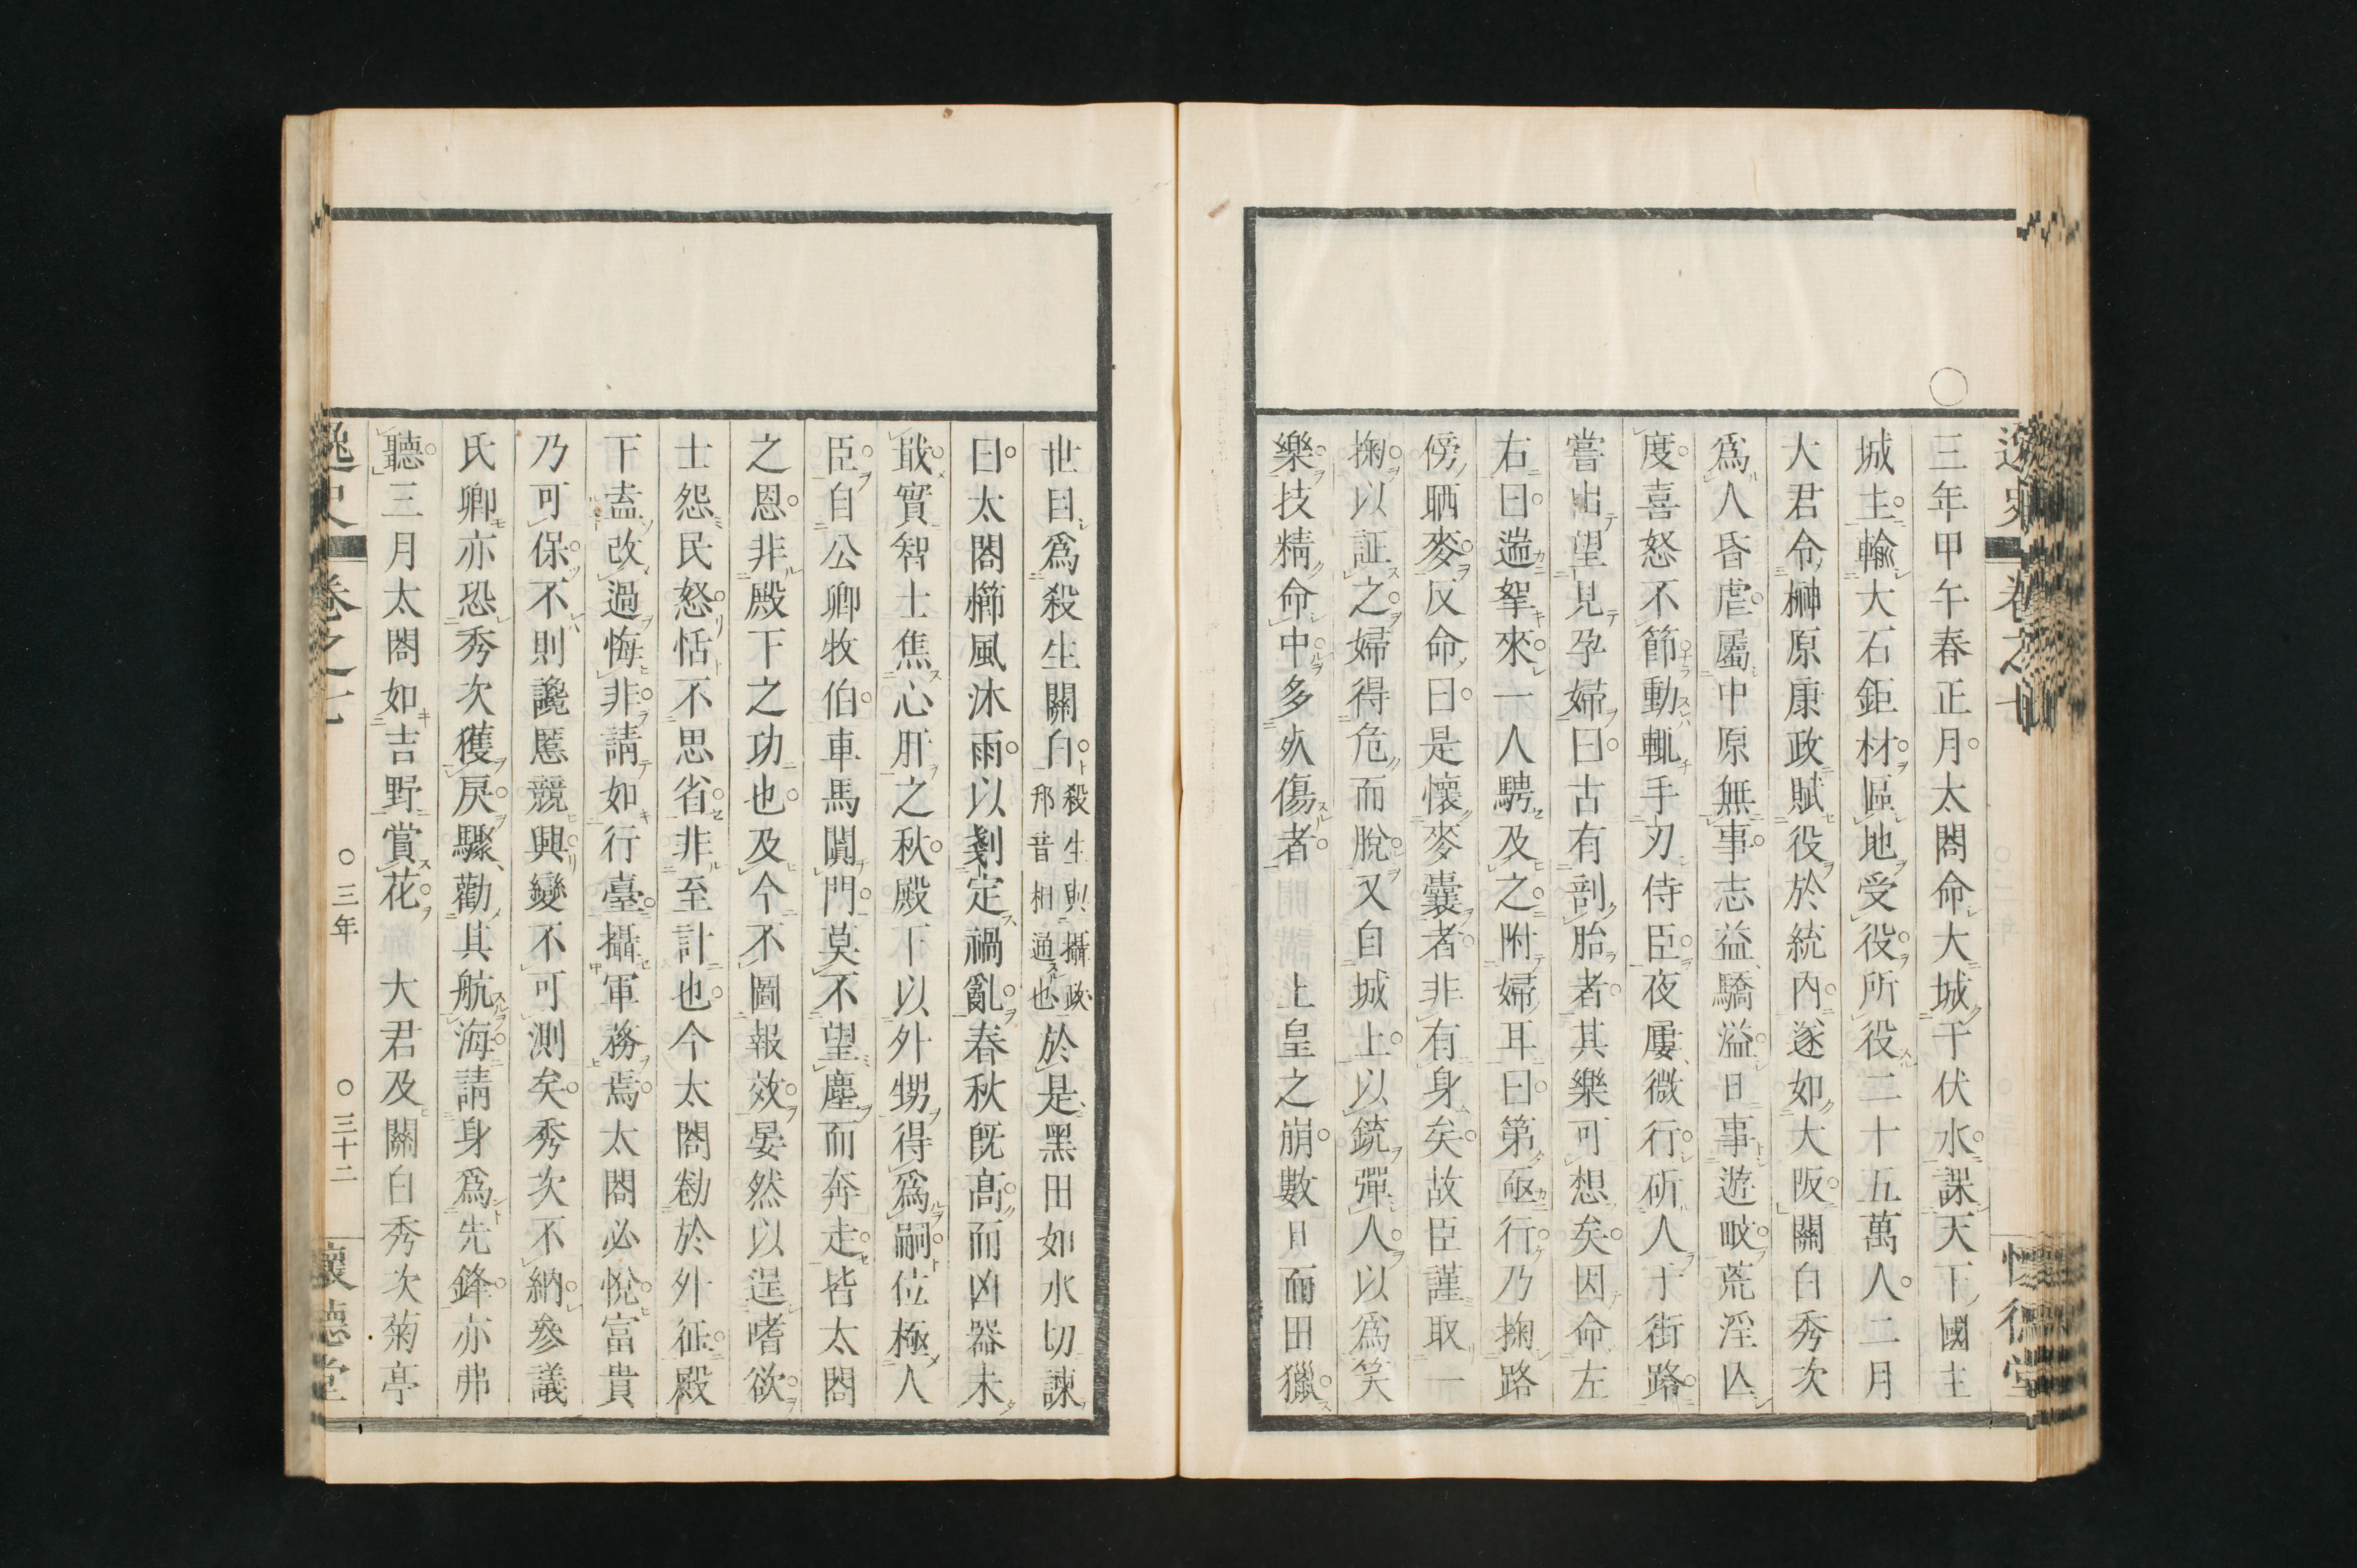 三年甲午春正月太閤命大城于伏水課天下國主
城主輸大石鉅材區地受役所役二十五萬人二月
大君命榊原康政賦役於統內遂如大阪關白秀次
爲人昏虐屬中原無事志益驕溢日事遊畋荒淫亾
度喜怒不節動輒手刃侍臣夜屢微行斫人于街路
嘗出望見孕婦曰古有剖胎者其樂可想矣因命左
右曰遄拏來一人騁及之附婦耳曰第亟行乃掬路
傍晒麥反命曰是懷麥囊者非有身矣故臣謹取一
掬以証之婦得危而脫又自城上以銃彈人以爲笑
樂技精命中多夾傷者 上皇之崩數日而田獵
世目爲殺生關白殺生則攝政邦音相通也於是黑田如水切諫
曰太閤櫛風沐雨以剗定禍亂春秋旣高而凶器未
戢實智士焦心肝之秋殿下以外甥得爲嗣位極人
臣自公卿牧伯車馬闐門莫不望塵而奔走皆太閤
之恩非殿下之功也及今不圖報效晏然以逞嗜欲
士怨民怒恬不思省非至計也今太閤勌於外征殿
下盍改過悔非請如行臺攝軍務焉太閤必悅富貴
乃可保不則讒慝競興變不可測矣秀次不納參議
氏卿亦恐秀次獲戾驟勸其航海請身爲先鋒亦弗
聽三月太閤如吉野賞花 大君及關白秀次菊亭
逸史 卷之七 ○三年 ○三十二 懷德堂